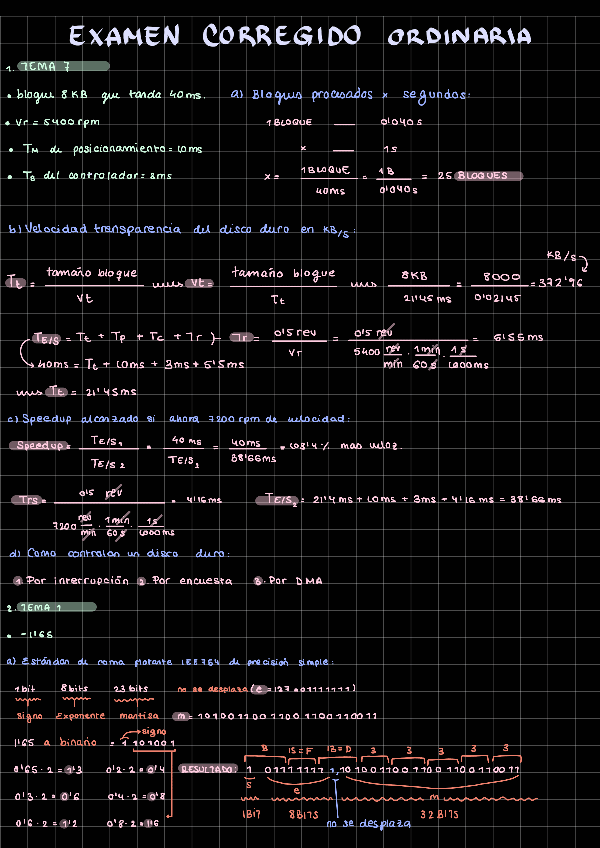 EXAMEN CORREGIDO ORDINARIA
1. TEMA 7
• bloque 8KB que tarda 40ms. a) Bloques procesados x segundos:
• Vr = 5400 rpm 1 BLOQUE — 0'040 s
• TM de posicionamiento = 10ms x — 1s
• Ts del controlador = 3ms x = 1 BLOQUE / 40ms = 1B / 0'040s = 25 BLOQUES
b) Velocidad transparencia del disco duro en KB/s:
Tt = tamaño bloque / Vt Vt = tamaño bloque / Tt 8KB / 21'45 ms = 8000 / 0'02145 = 372'96 KB/s
TE/S = Tt + Tp + Tc + Tr Tr = 0'5 rev / Vr = 0'5 rev / 5400 rev/min · 1min/60s · 1s/1000ms = 5'55 ms
40ms = Tt + 10ms + 3ms + 5'5ms
Tt = 21'45ms
c) Speedup alcanzado si ahora 7200 rpm de velocidad:
Speedup = TE/S1 / TE/S2 = 40 ms / TE/S2 = 40ms / 38'66ms = 103'4 % mas veloz.
Trs = 0'5 rev / 7200 rev/min · 1min/60s · 1s/1000ms = 4'16ms TE/S2 = 21'4 ms + 10ms + 3ms + 4'16 ms = 38'66 ms
d) Como controlan un disco duro:
1 Por interrupción 2. Por encuesta 3. Por DMA
2. TEMA 1
• -1'65
a) Estándar de coma flotante IEEE754 de precisión simple:
1bit 8bits 23 bits no se desplaza (e = 127 = 01111111)
signo Exponente mantisa m = 10100110011001100110011
signo
1'65 a binario = 1 10100 1
0'65 · 2 = 1'3 0'2 · 2 = 0'4 RESULTADO:
0'3 · 2 = 0'6 0'4 · 2 = 0'8
0'6 · 2 = 1'2 0'8 · 2 = 1'6
B 15=F 13=D 3 3 3 3 3
1 01111111 1, 10100110011001100110011
s e m
1BIT 8BITS 32 BITS
no se desplaza